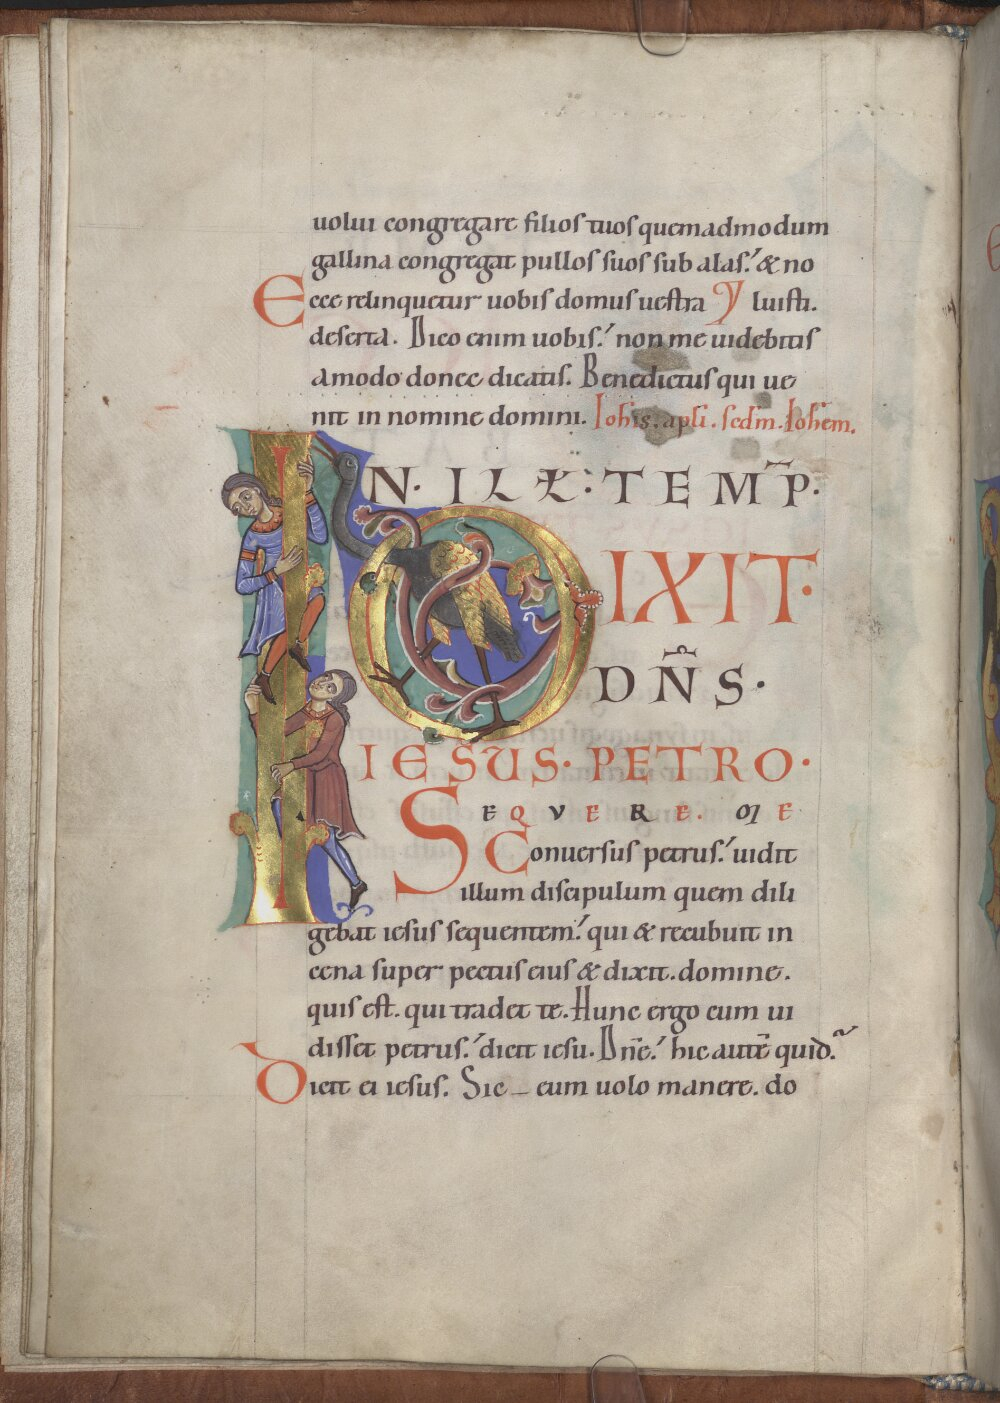 uolui congregare filios tuos quemadmodum
gallina congregat pullos suos sub alas. & no
Ecce relinquetur uobis domus uestra luisti.
deserta. Dico enim uobis. non me uidebitis
amodo donec dicatis. Benedictus qui ue
nit in nomine domini. Iohis. apli. sedm. Iohem.
IN. ILL: TEMP̄.
DIXIT.
DN̄S.
IESUS. PETRO.
SEQVERE. ME
Conuersus petrus. uidit
illum discipulum quem dili
gebat iesus sequentem. qui & recubuit in
cena super pectus eius & dixit. domine.
quis est. qui tradet te. Hunc ergo cum ui
disset petrus. dicit iesu. Dn̄e. hic autē quid.
Dicit ei iesus. Sic eum uolo manere. do